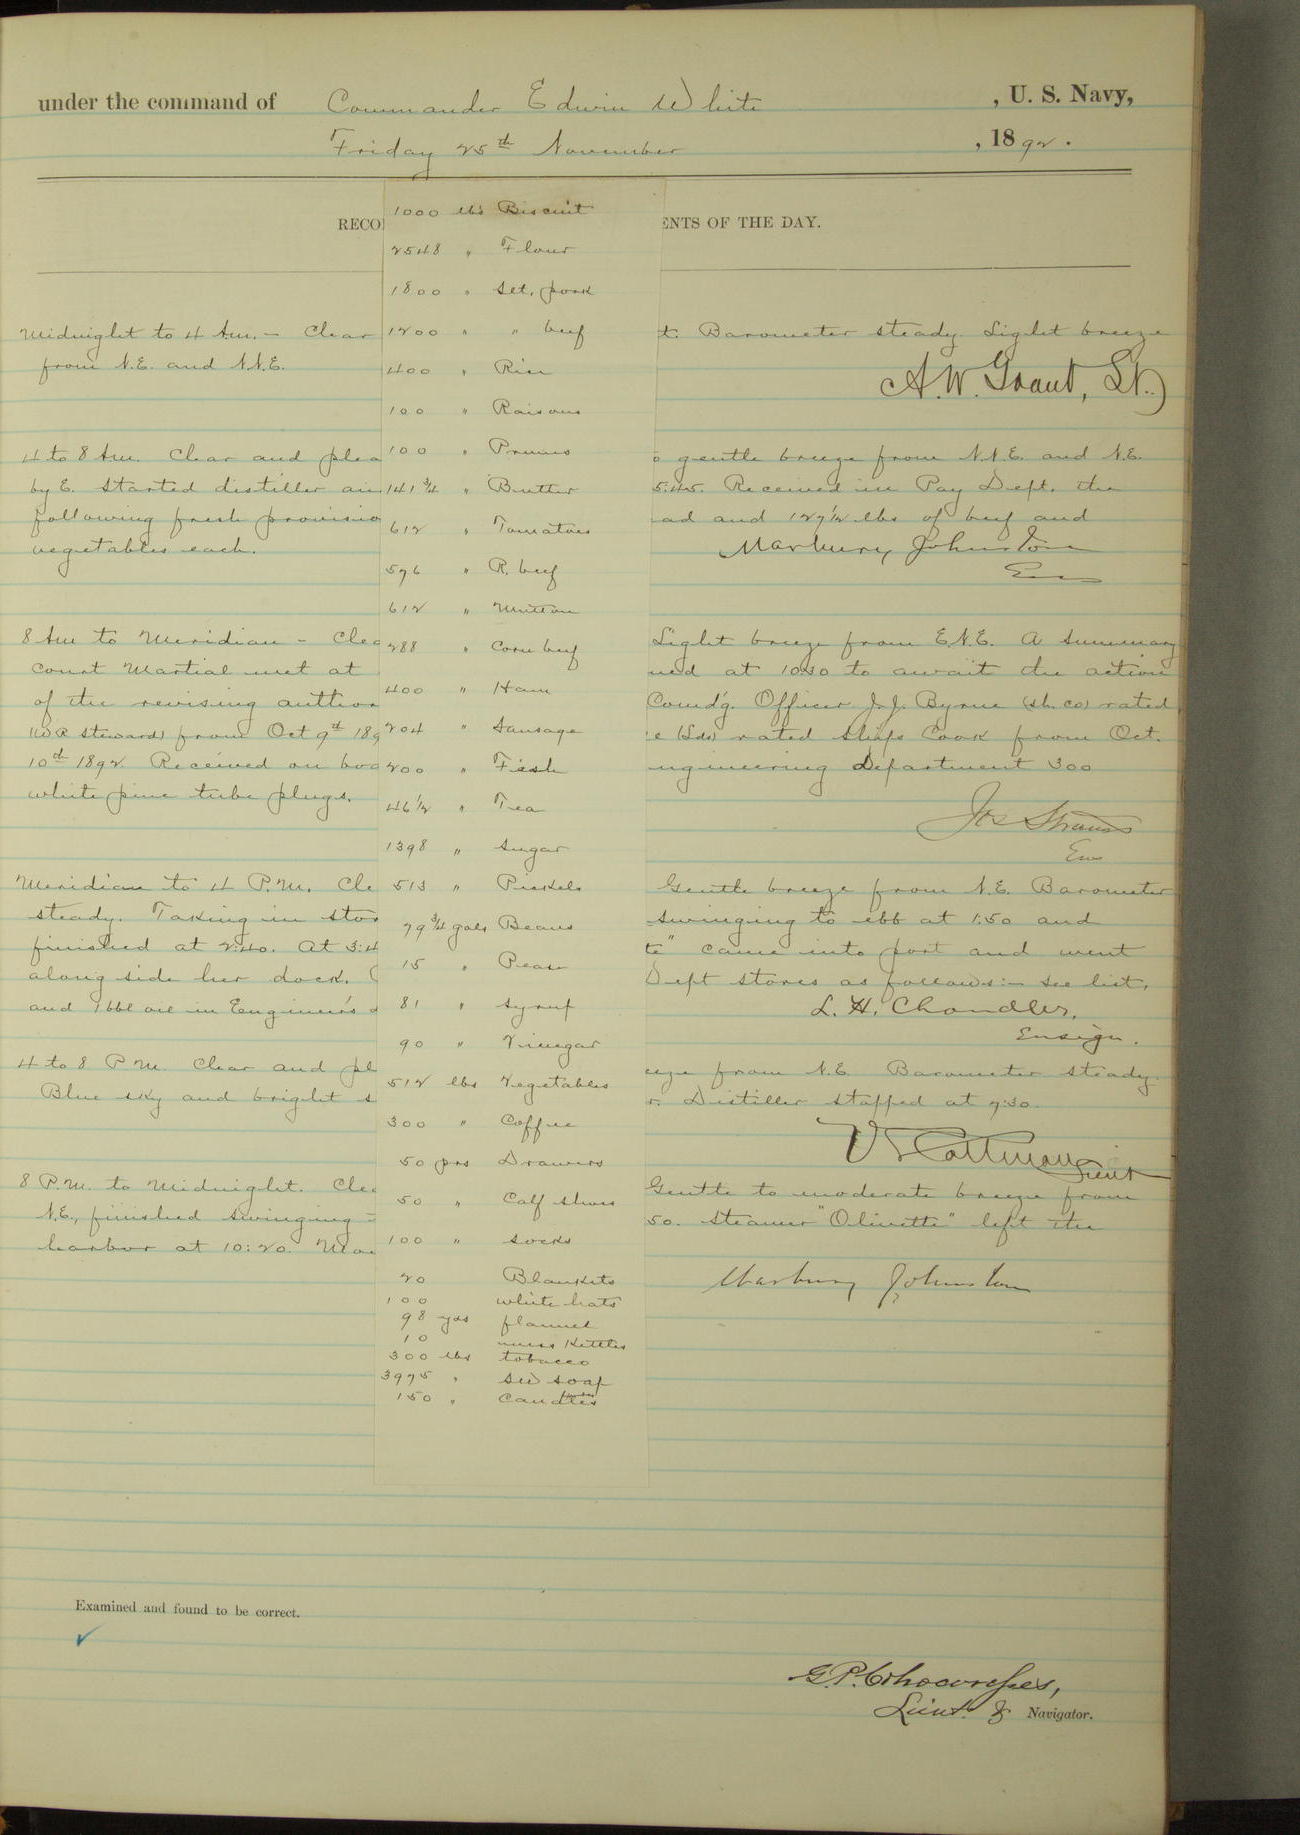 under the command of Commander Edwin White , U. S. Navy,
Friday 25th November , 1892.
RECO ENTS OF THE DAY.
Midnight to 4 A.m. – Clear t. Barometer steady Light breeze
from N.E. and N.N.E.
A. W. Grant, Lt.
4 to 8 Am. Clear and plea o gentle breeze from N.N.E. and N.E.
by E. Started distiller 5.45. Received in Pay Dept. the
following fresh provisio ad and 127½ lbs of beef and
vegetables each.
Marbury Johnston
Ens
8 Am to Meridian – Clea Light breeze from E.N.E. A summary
court Martial met at ned at 10:30 to await the action
of the revising author Comd'g. Officer J. J. Byrne (sh. co) rated
(W.R Steward) from Oct 9th 189 e (Lds) rated ships Cook from Oct.
10th 1892 Received on boa ngineering Department 300
white pine tube plugs.
Jos Strauss
Ens
Meridian to 4 P.M. Cle Gentle breeze from N.E. Barometer
steady. Taking in stor swinging to ebb at 1:50 and
finished at 2:40. At 3:4 te" came into port and went
along side her dock. Dept stores as follows:– see list,
and 1 bbl oil in Engineer's
L. H. Chandler,
Ensign.
4 to 8 P M. Clear and pl eeze from N.E. Barometer steady.
Blue sky and bright s r. Distiller stopped at 7:30
V S Cottman
Lieut
8 P.M. to Midnight. Clea Gentle to moderate breeze from
N.E., finished swinging 50. Steamer "Olivette" left the
harbor at 10:20.
Marbury Johnston
1000 lbs Biscuit
2548 " Flour
1800 " Slt. pork
1200 " " beef
400 " Rice
100 " Raisons
100 " Prunes
141 ¾ " Butter
612 " Tomatoes
576 " R. beef
612 " Mutton
288 " Corn beef
400 " Ham
204 " Sausage
200 " Fish
46½ " Tea
1398 " Sugar
513 " Pickels
79 ¾ gals Beans
15 " Pease
81 " Syrup
90 " Vinegar
512 lbs Vegetables
300 " Coffee
50 prs Drawers
50 " Calf shoes
100 " socks
20 Blankets
100 white hats
98 yds flannel
10 mess Kettles
300 lbs tobacco
3975 " soap
150 " Candles
Examined and found to be correct.
G. P.
Lieut. & Navigator.